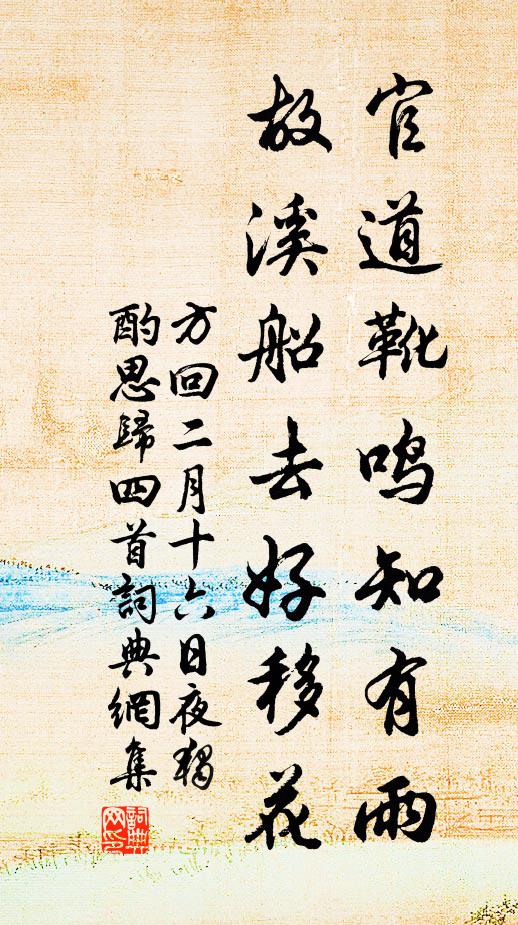 官道靴鸣知有雨
故溪船去好移花
方回二月十六日夜独
酌思歸四首詞典網集
詞典网印